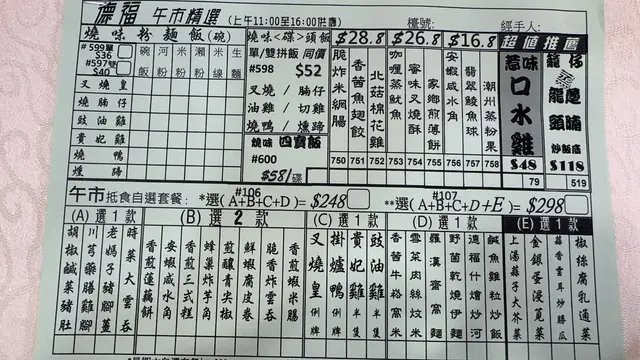 德福 午市精選 (上午11:00至16:00供應) 檯號: 經手人:
燒味粉麵飯(碗)
#599單 $36
#597雙 $40
碗飯
河粉
米粉
瀨粉
米線
生麵
叉燒皇
燒腩仔
豉油雞
貴妃雞
燒鴨
燻蹄
燒味<碟>頭飯
單/雙拼飯 同價
#598 $52
叉燒/腩仔
油雞/切雞
燒鴨/燻蹄
燒味四寶飯
#600
$58/碟
$28.8
脆炸米網腸 750
香茜魚翅餃 751
北菇棉花雞 752
$26.8
咖喱蒸魷魚 753
蜜味叉燒酥 754
家鄉煎薄餅 755
$16.8
安蝦咸水角 756
翡翠鯪魚球 757
潮州蒸粉果 758
超值推薦
惹味口水雞
$48
79
$118
519
午市 抵食自選套餐:
#106
*選(A+B+C+D)=$248
#107
**選(A+B+C+D+E)=$298
(A) 選1款
胡椒鹹菜豬肚
川芎藥膳雞腳
老媽子豬腳薑
時菜大雲吞
(B) 選2款
香煎蓮藕餅
安蝦咸水角
香煎三式糕
蜂巢炸芋角
煎釀青尖椒
鮮蝦腐皮卷
脆香炸雲吞
香煎米腸
(C) 選1款
叉燒皇 例牌
掛爐鴨 例牌
貴妃雞 半隻
豉油雞 半隻
(D) 選1款
香茜牛崧窩米
雪菜肉絲炆米
羅漢齋窩麵
野菌乾燒伊麵
德福什燴炒河
鹹魚雞粒炒飯
(E) 選1款
上湯蒜子大芥菜
金銀蛋浸莧菜
蒜香雲耳炒勝瓜
椒絲腐乳通菜